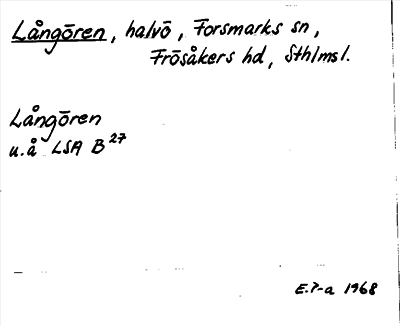 Långören, halvö, Forsmarks sn,
Frösåkers hd, Sthlmsl.
Långören
u.å LSA B 27
E.P-a 1968